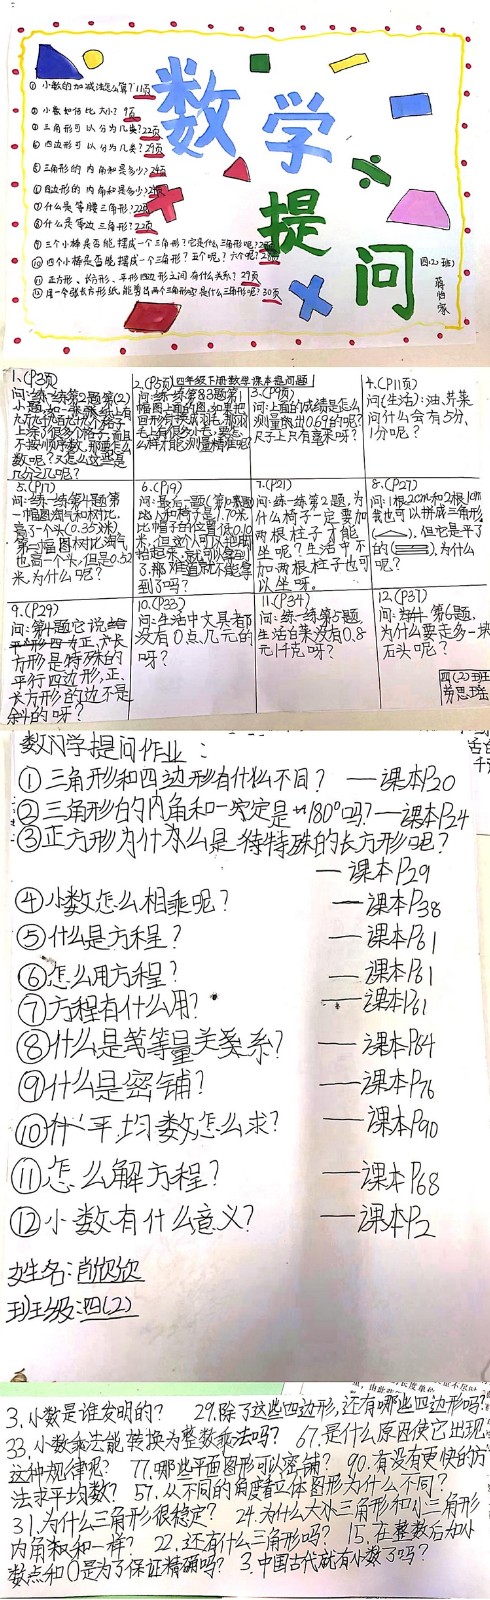 数学
提问
① 小数的加减法怎么算?11页
② 小数如何比大小?9页
③ 三角形可以分为几类?22页
④ 四边形可以分为几类?29页
⑤ 三角形的内角和是多少?24页
⑥ 四边形的内角和是多少?
⑦ 什么是等腰三角形?22页
⑧ 什么是等边三角形?22页
⑨ 三个小棒是否能摆成一个三角形?它是什么三角形呢?
⑩ 四个小棒是否能摆成一个三角形?五个呢?六个呢?
⑪ 正方形、长方形、平行四边形之间有什么关系?29页
⑫ 用一张长方形纸,能剪出两个三角形吗?是什么三角形呢?30页
四(2)班
1、(P3页)
问:练一练第2题第(2)
小题,
数呢?又怎么这些是
几分之几呢?
2.(P5页)四年级下册数学课本提问题
3.(P9页)
问:上面的成绩是怎么
测量出0.69的呢?
尺子上只有毫米呀?
4.(P11页)
问(生活):油、芹菜
问什么会有5分、
1分呢?
5.(P17)
问:练一练第4题第
一幅图淘气和树比,
高了一个头(0.35米),
第二幅图树比淘气
也高一个头,但是0.52
米,为什么呢?
6.(P19)
问:最后一题(第10题)
人和椅子是1.70米
比帽子的位置低0.10
米,但这个人可以把胳
膊抬起来,就可以拿到
了,那难道就不能拿
到了吗?
7.(P21)
问:练一练第2题,为
什么椅子一定要加
两根柱子才能
坐呢?生活中不
加两根柱子也可
以坐呀。
8.(P27)
问:1根20cm和2根10cm
我也可以拼成三角形
,但它是平了
的,为什么
呢?
9.(P29)
问:第4题它说
正、长
方形是特殊的
平行四边形,正、
长方形的边不是
斜的呀?
10.(P33)
问:生活中文具都
没有0点几元的
呀?
11.(P34)
问:练一练第5题,
生活白菜没有0.8
元1千克呀?
12.(P37)
问:第6题,
为什么要走多一块
石头呢?
四(2)班
劳思瑶
数学提问作业:
①三角形和四边形有什么不同? —课本P20
②三角形的内角和一定是180°吗?—课本P24
③正方形为什么是特殊的长方形呢?
—课本P29
④小数怎么相乘呢? —课本P38
⑤什么是方程? —课本P61
⑥怎么用方程? —课本P61
⑦方程有什么用? —课本P61
⑧什么是等量关系? —课本P64
⑨什么是密铺? —课本P76
⑩平均数怎么求? —课本P90
⑪怎么解方程? —课本P68
⑫小数有什么意义? —课本P2
姓名:肖欣欣
班级:四(2)
3.小数是谁发明的? 29.除了这些四边形,还有哪些四边形吗?
33.小数乘法能转换为整数乘法吗? 67.是什么原因使它出现
这种规律呢? 77.哪些平面图形可以密铺? 90.有没有更快的方
法求平均数? 57.从不同的角度看立体图形为什么不同?
31.为什么三角形很稳定? 24.为什么大三角形和小三角形
内角和一样? 22.还有什么三角形吗? 15.在整数后加小
数点和0是为了保证精确吗? 3.中国古代就有小数了吗?